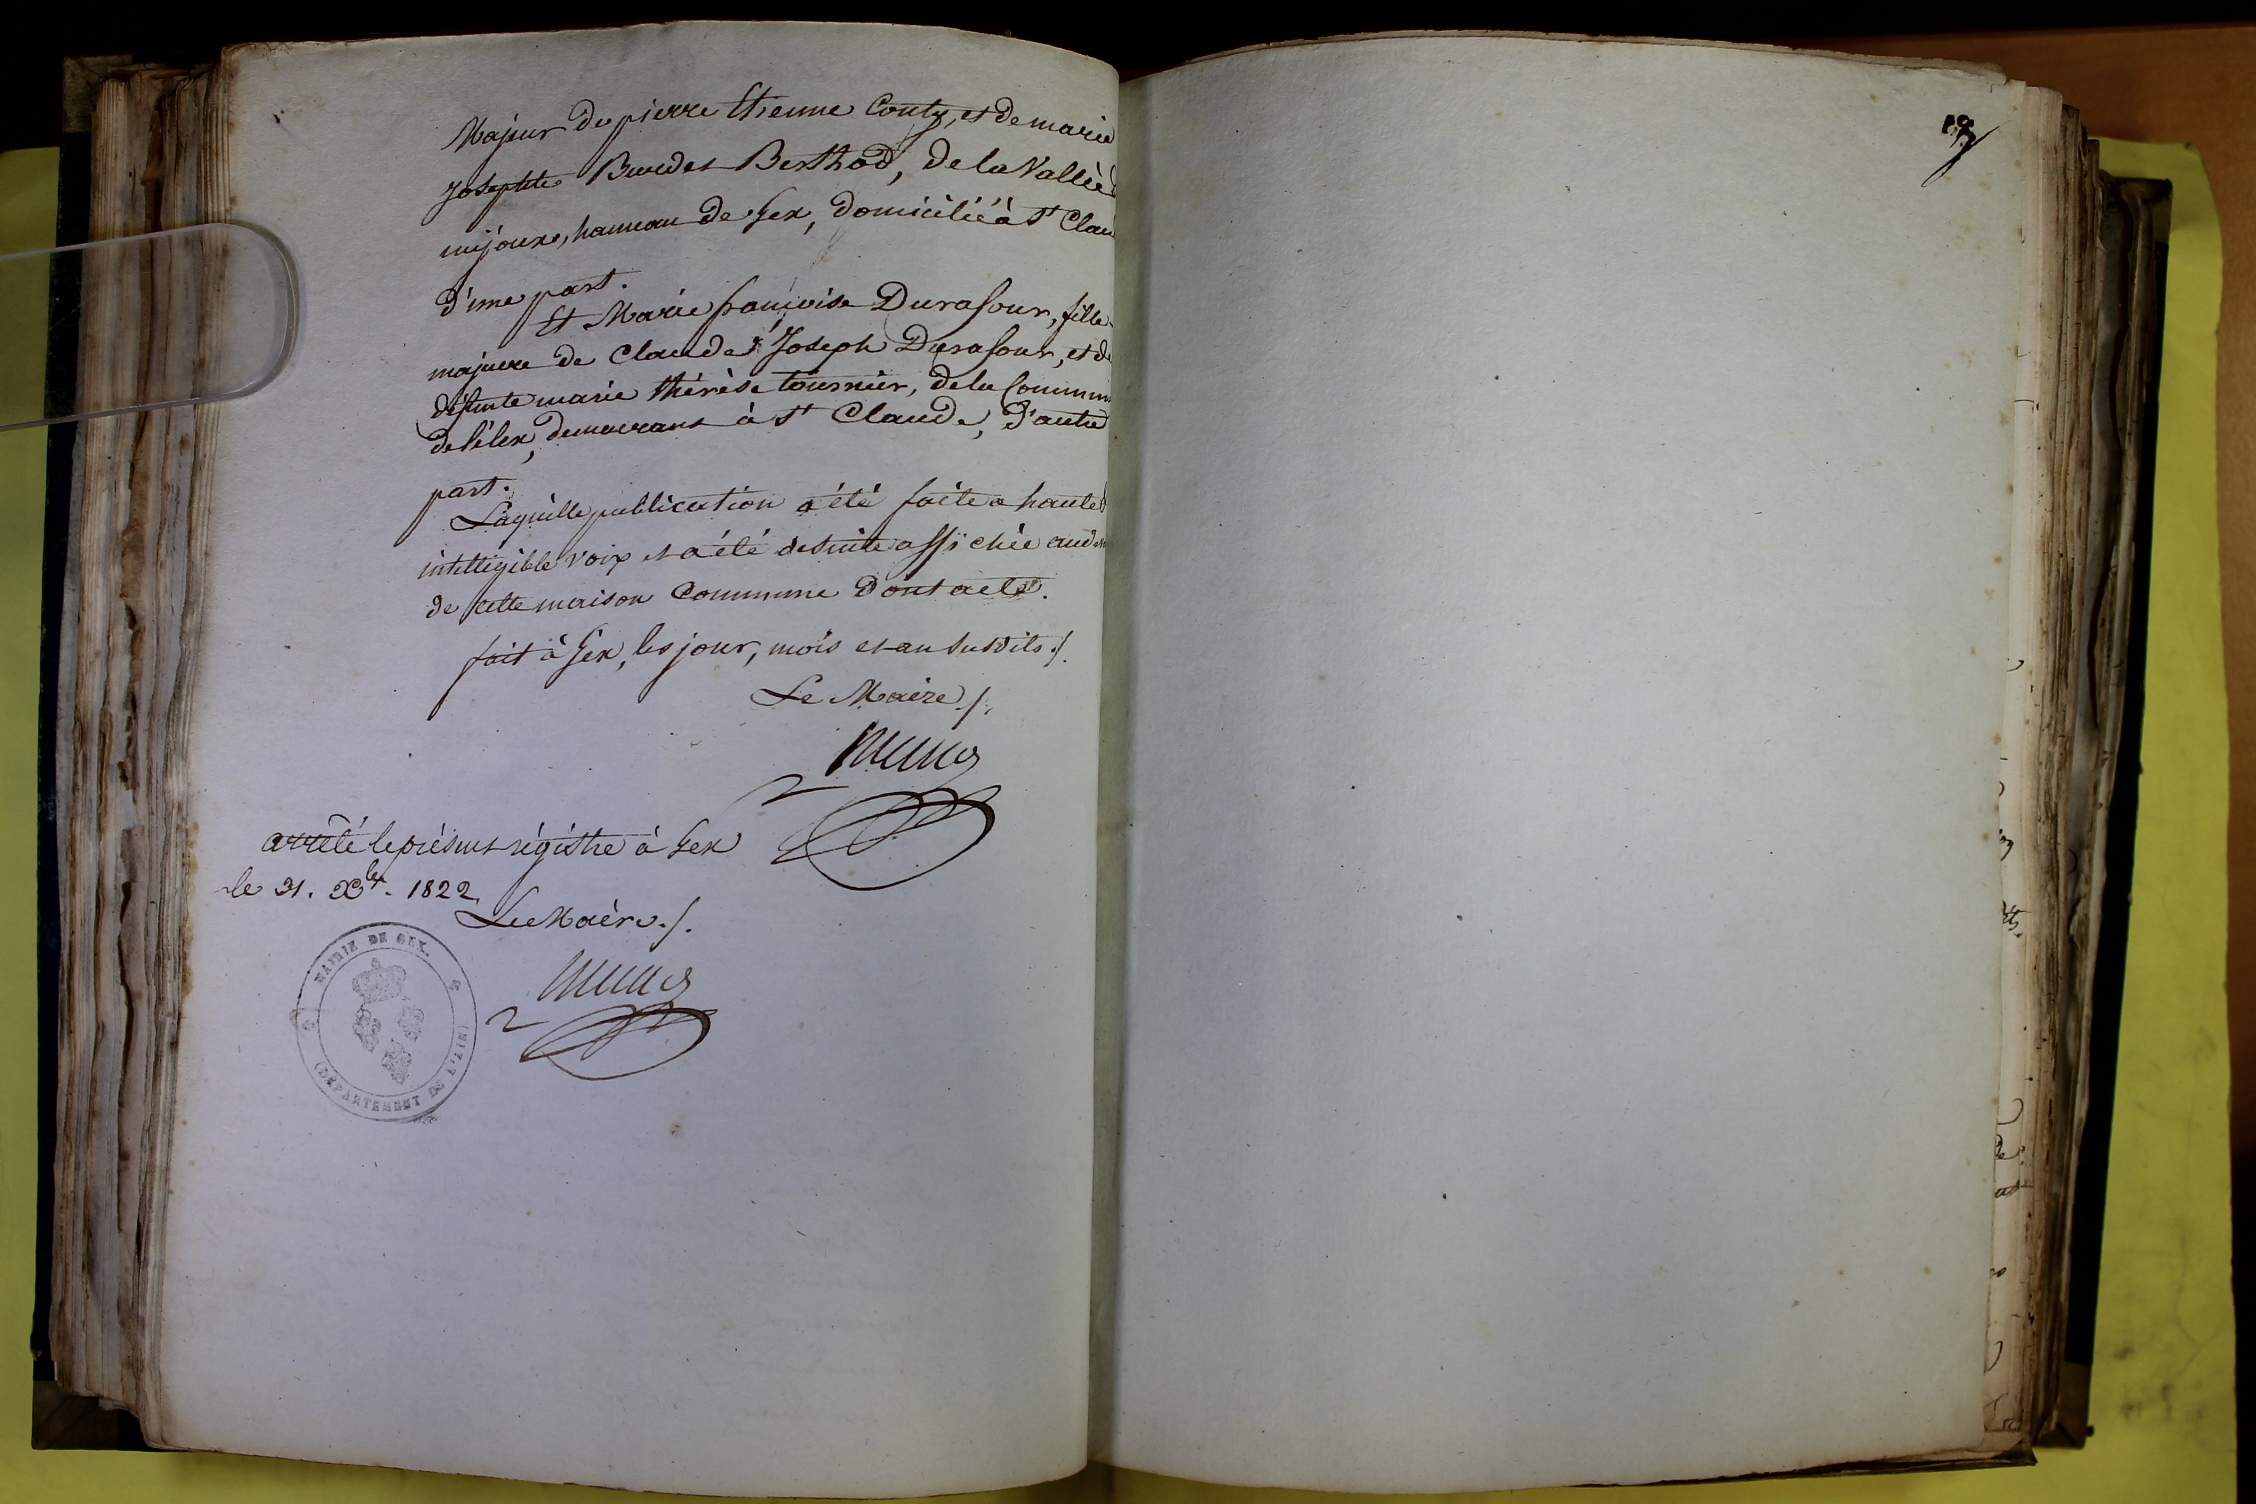 Majeur de pierre Etienne Conty, et de marie
Josephte Burdet Berthod, de la Vallée
mijoux, hameau de Gex, domicilié à St Clau
d'une part.
Et Marie françoise Durafour, fille
majeure de Claude Joseph Durafour, et de
défunte marie thérèse tournier, de la Commun
de lélex, demeurant à St Claude, d'autre
part.
Laquelle publication a été faite a haute
intelligible voix et a été desuite affichée au
de cette maison Commune Dont acte.
fait à Gex, les jour, mois et an susdits ./.
Le Maire ./.
arrêté le présent régistre à Gex
le 31. Xbre. 1822
Le Maire ./.
MAIRIE DE GEX.
(DÉPARTEMENT DE L'AIN)